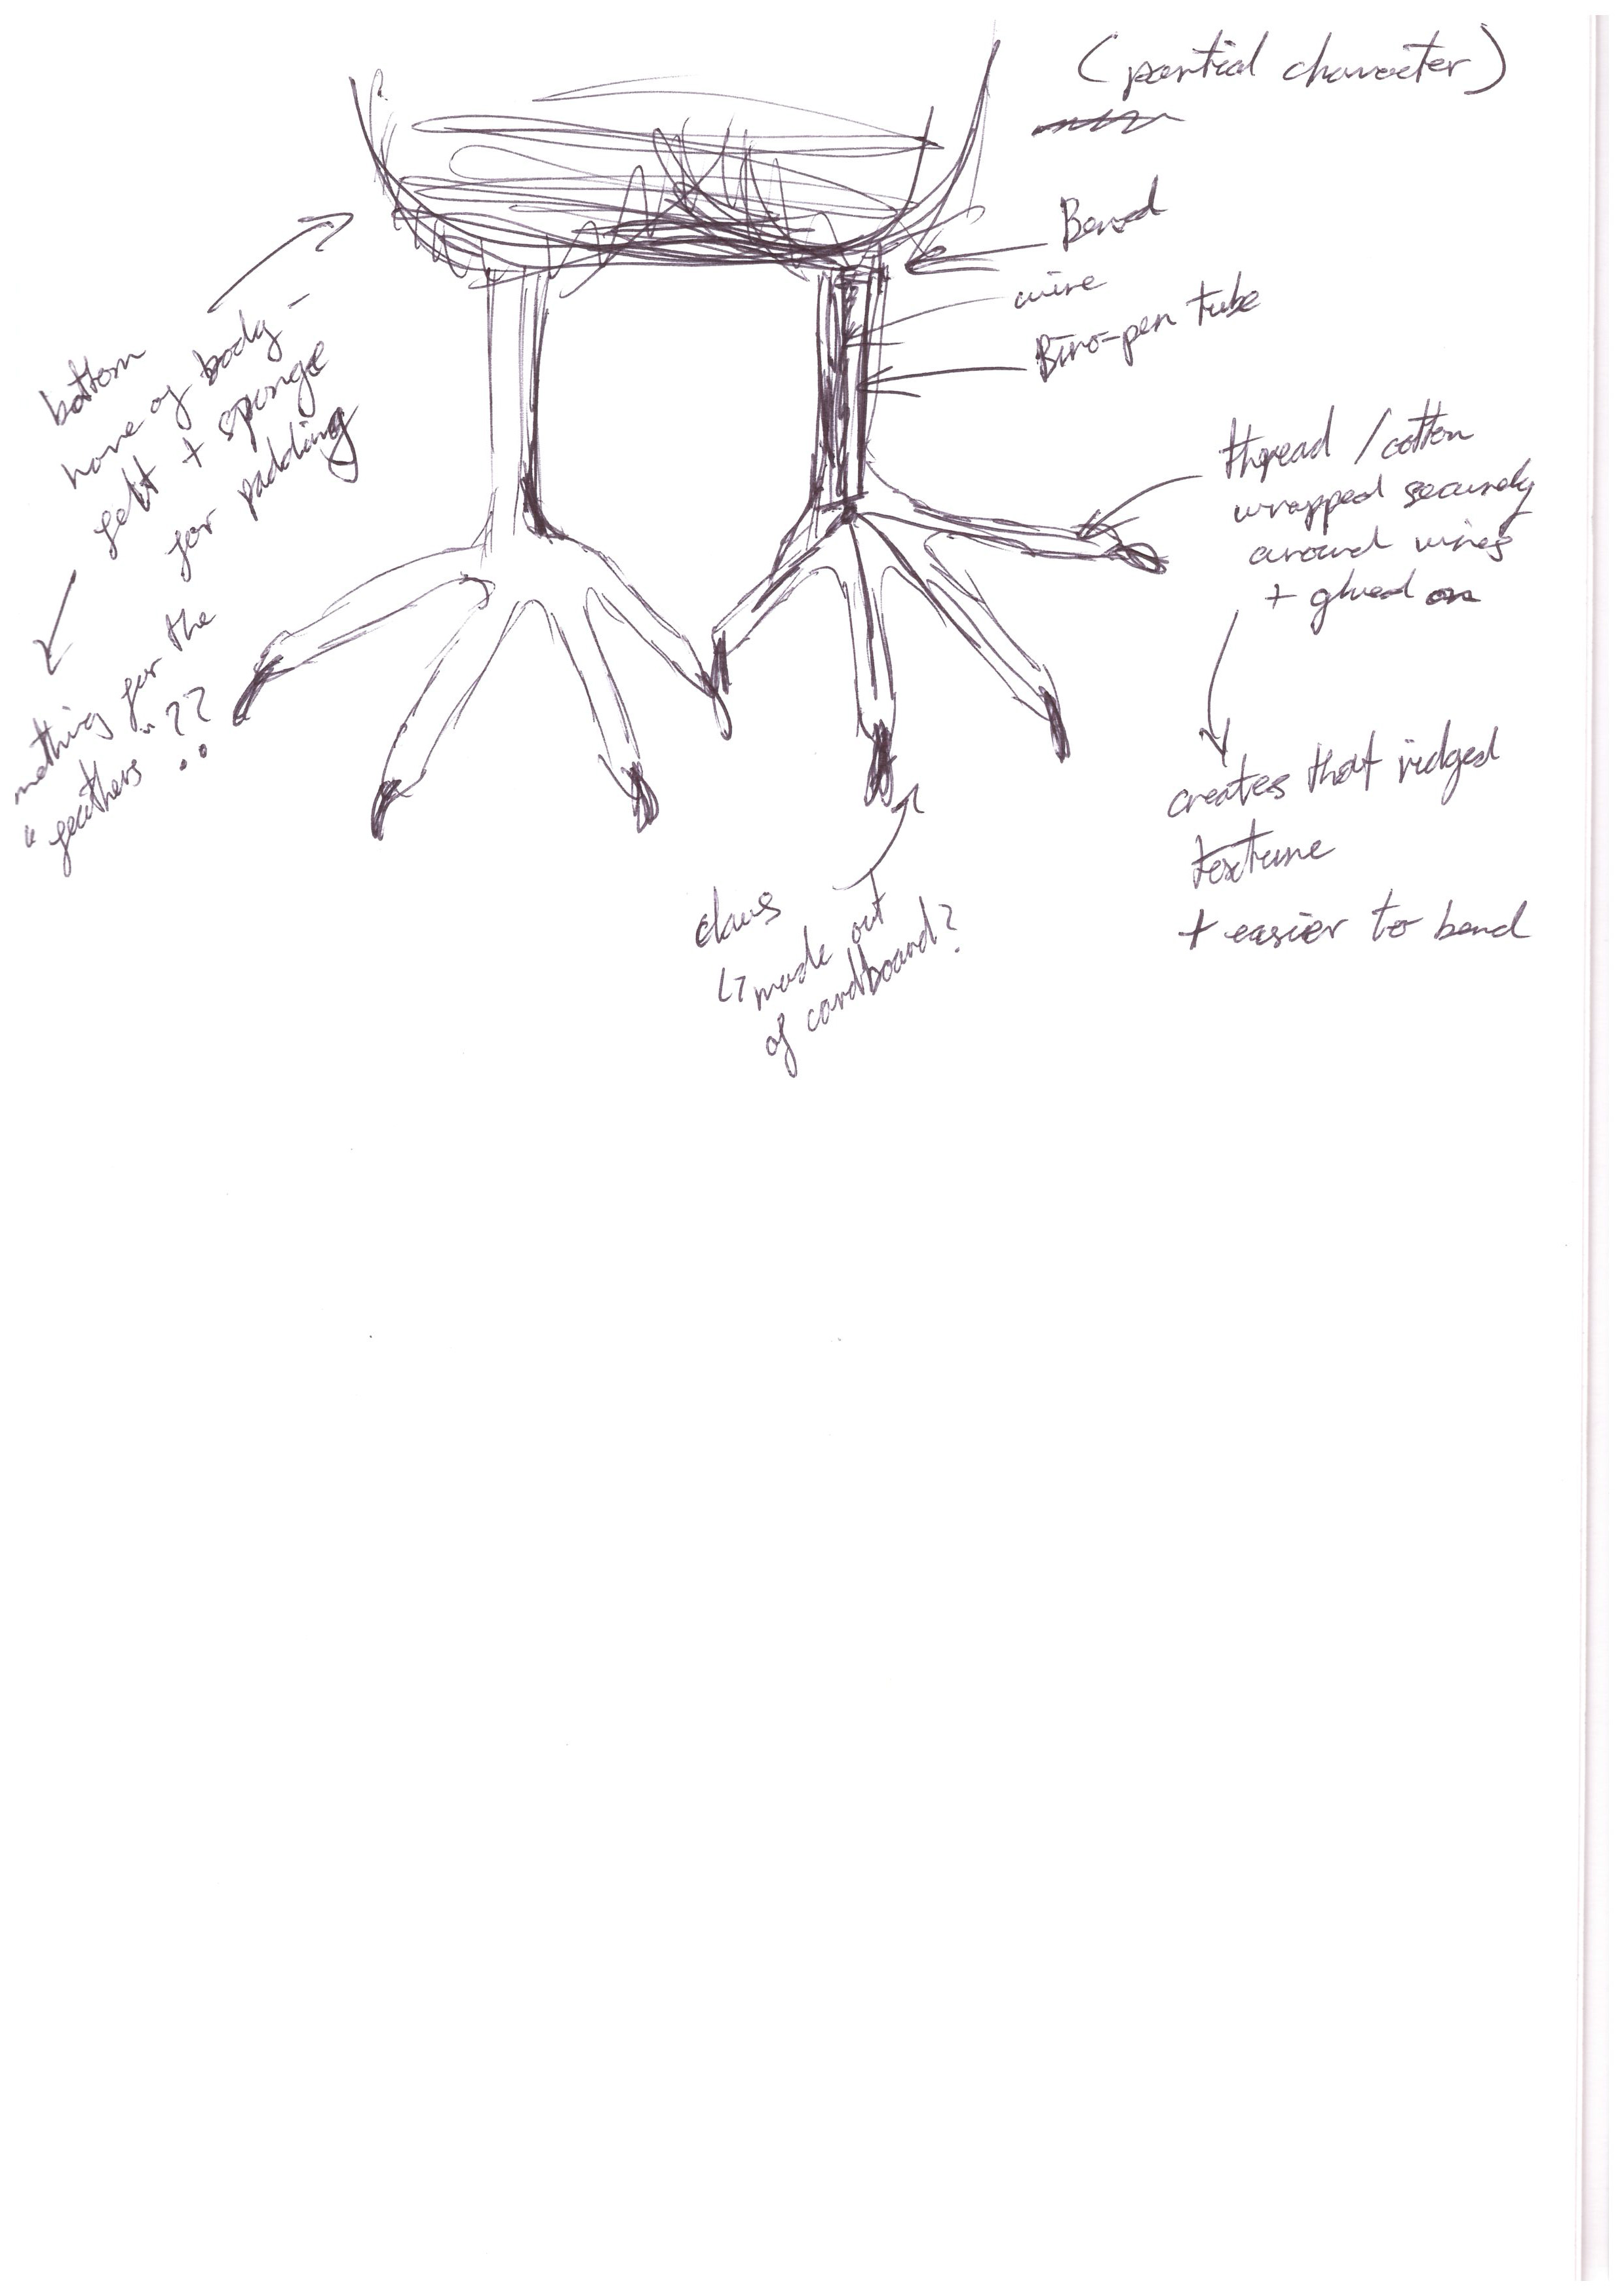 (partial character)
Bead
wire
Biro-pen tube
thread / cotton
wrapped securely
around wires
+ glued on
creates that ridged
texture
+ easier to bend
bottom
of body -
felt + sponge
for padding
for the
"feathers" ??
claws
↳ made out
of cardboard?